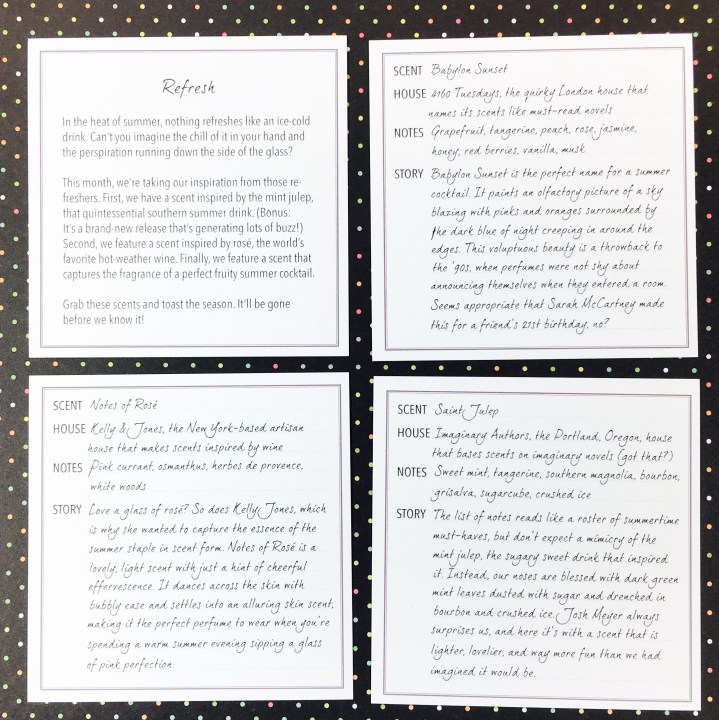 Refresh
In the heat of summer, nothing refreshes like an ice-cold
drink. Can't you imagine the chill of it in your hand and
the perspiration running down the side of the glass?
This month, we're taking our inspiration from those re-
freshers. First, we have a scent inspired by the mint julep,
that quintessential southern summer drink. (Bonus:
It's a brand-new release that's generating lots of buzz!)
Second, we feature a scent inspired by rosé, the world's
favorite hot-weather wine. Finally, we feature a scent that
captures the fragrance of a perfect fruity summer cocktail.
Grab these scents and toast the season. It'll be gone
before we know it!
SCENT Babylon Sunset
HOUSE 4160 Tuesdays, the quirky London house that
names its scents like must-read novels
NOTES Grapefruit, tangerine, peach, rose, jasmine,
honey, red berries, vanilla, musk
STORY Babylon Sunset is the perfect name for a summer
cocktail. It paints an olfactory picture of a sky
blazing with pinks and oranges surrounded by
the dark blue of night creeping in around the
edges. This voluptuous beauty is a throwback to
the '90s, when perfumes were not shy about
announcing themselves when they entered a room.
Seems appropriate that Sarah McCartney made
this for a friend's 21st birthday, no?
SCENT Notes of Rosé
HOUSE Kelly & Jones, the New York-based artisan
house that makes scents inspired by wine
NOTES Pink currant, osmanthus, herbes de provence,
white woods
STORY Love a glass of rosé? So does Kelly Jones, which
is why she wanted to capture the essence of the
summer staple in scent form. Notes of Rosé is a
lovely, light scent with just a hint of cheerful
effervescence. It dances across the skin with
bubbly ease and settles into an alluring skin scent,
making it the perfect perfume to wear when you're
spending a warm summer evening sipping a glass
of pink perfection.
SCENT Saint Julep
HOUSE Imaginary Authors, the Portland, Oregon, house
that bases scents on imaginary novels (got that?)
NOTES Sweet mint, tangerine, southern magnolia, bourbon,
grisalva, sugarcube, crushed ice
STORY The list of notes reads like a roster of summertime
must-haves, but don't expect a mimicry of the
mint julep, the sugary sweet drink that inspired
it. Instead, our noses are blessed with dark green
mint leaves dusted with sugar and drenched in
bourbon and crushed ice. Josh Meyer always
surprises us, and here it's with a scent that is
lighter, lovelier, and way more fun than we had
imagined it would be.